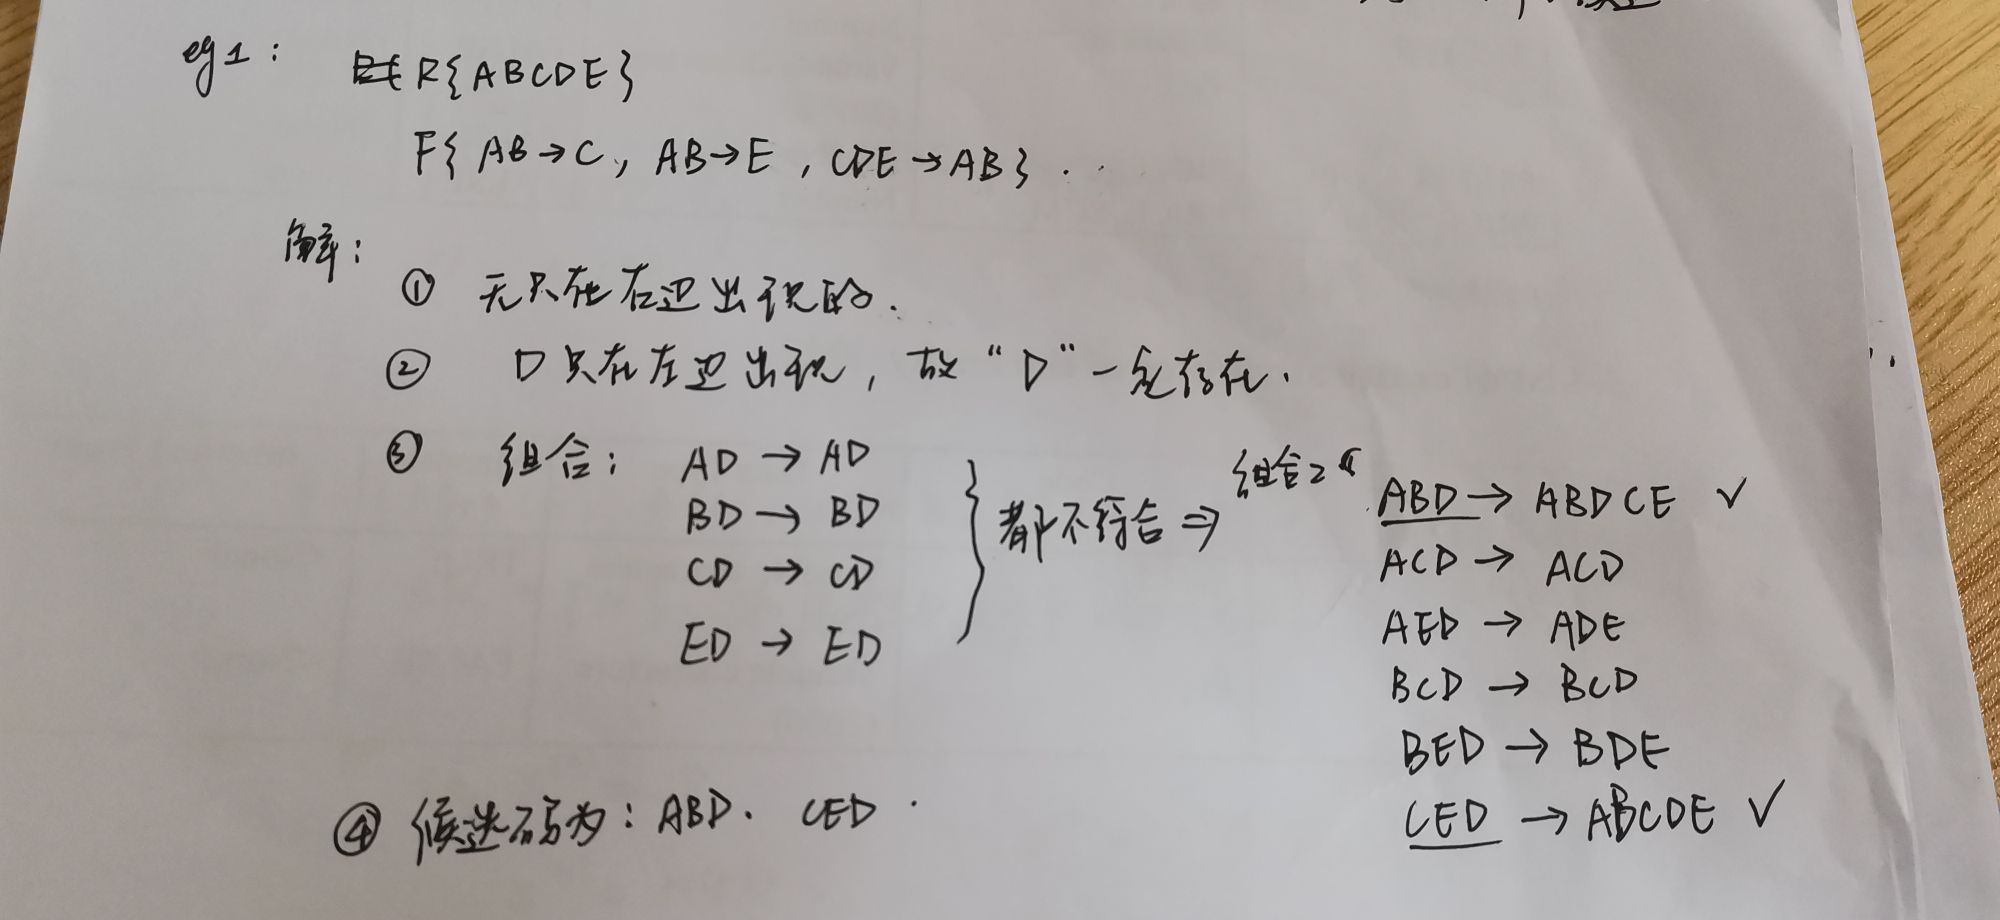 eg1: R{ABCDE}
F{AB→C, AB→E, CDE→AB}.
解:
① 无只在右边出现的.
② D只在左边出现, 故“D”一定存在.
③ 组合: AD → AD
BD → BD
CD → CD
ED → ED
都不符合 ⇒ 组合2
ABD → ABDCE ✓
ACD → ACD
AED → ADE
BCD → BCD
BED → BDE
CED → ABCDE ✓
④ 候选码为: ABD. CED.